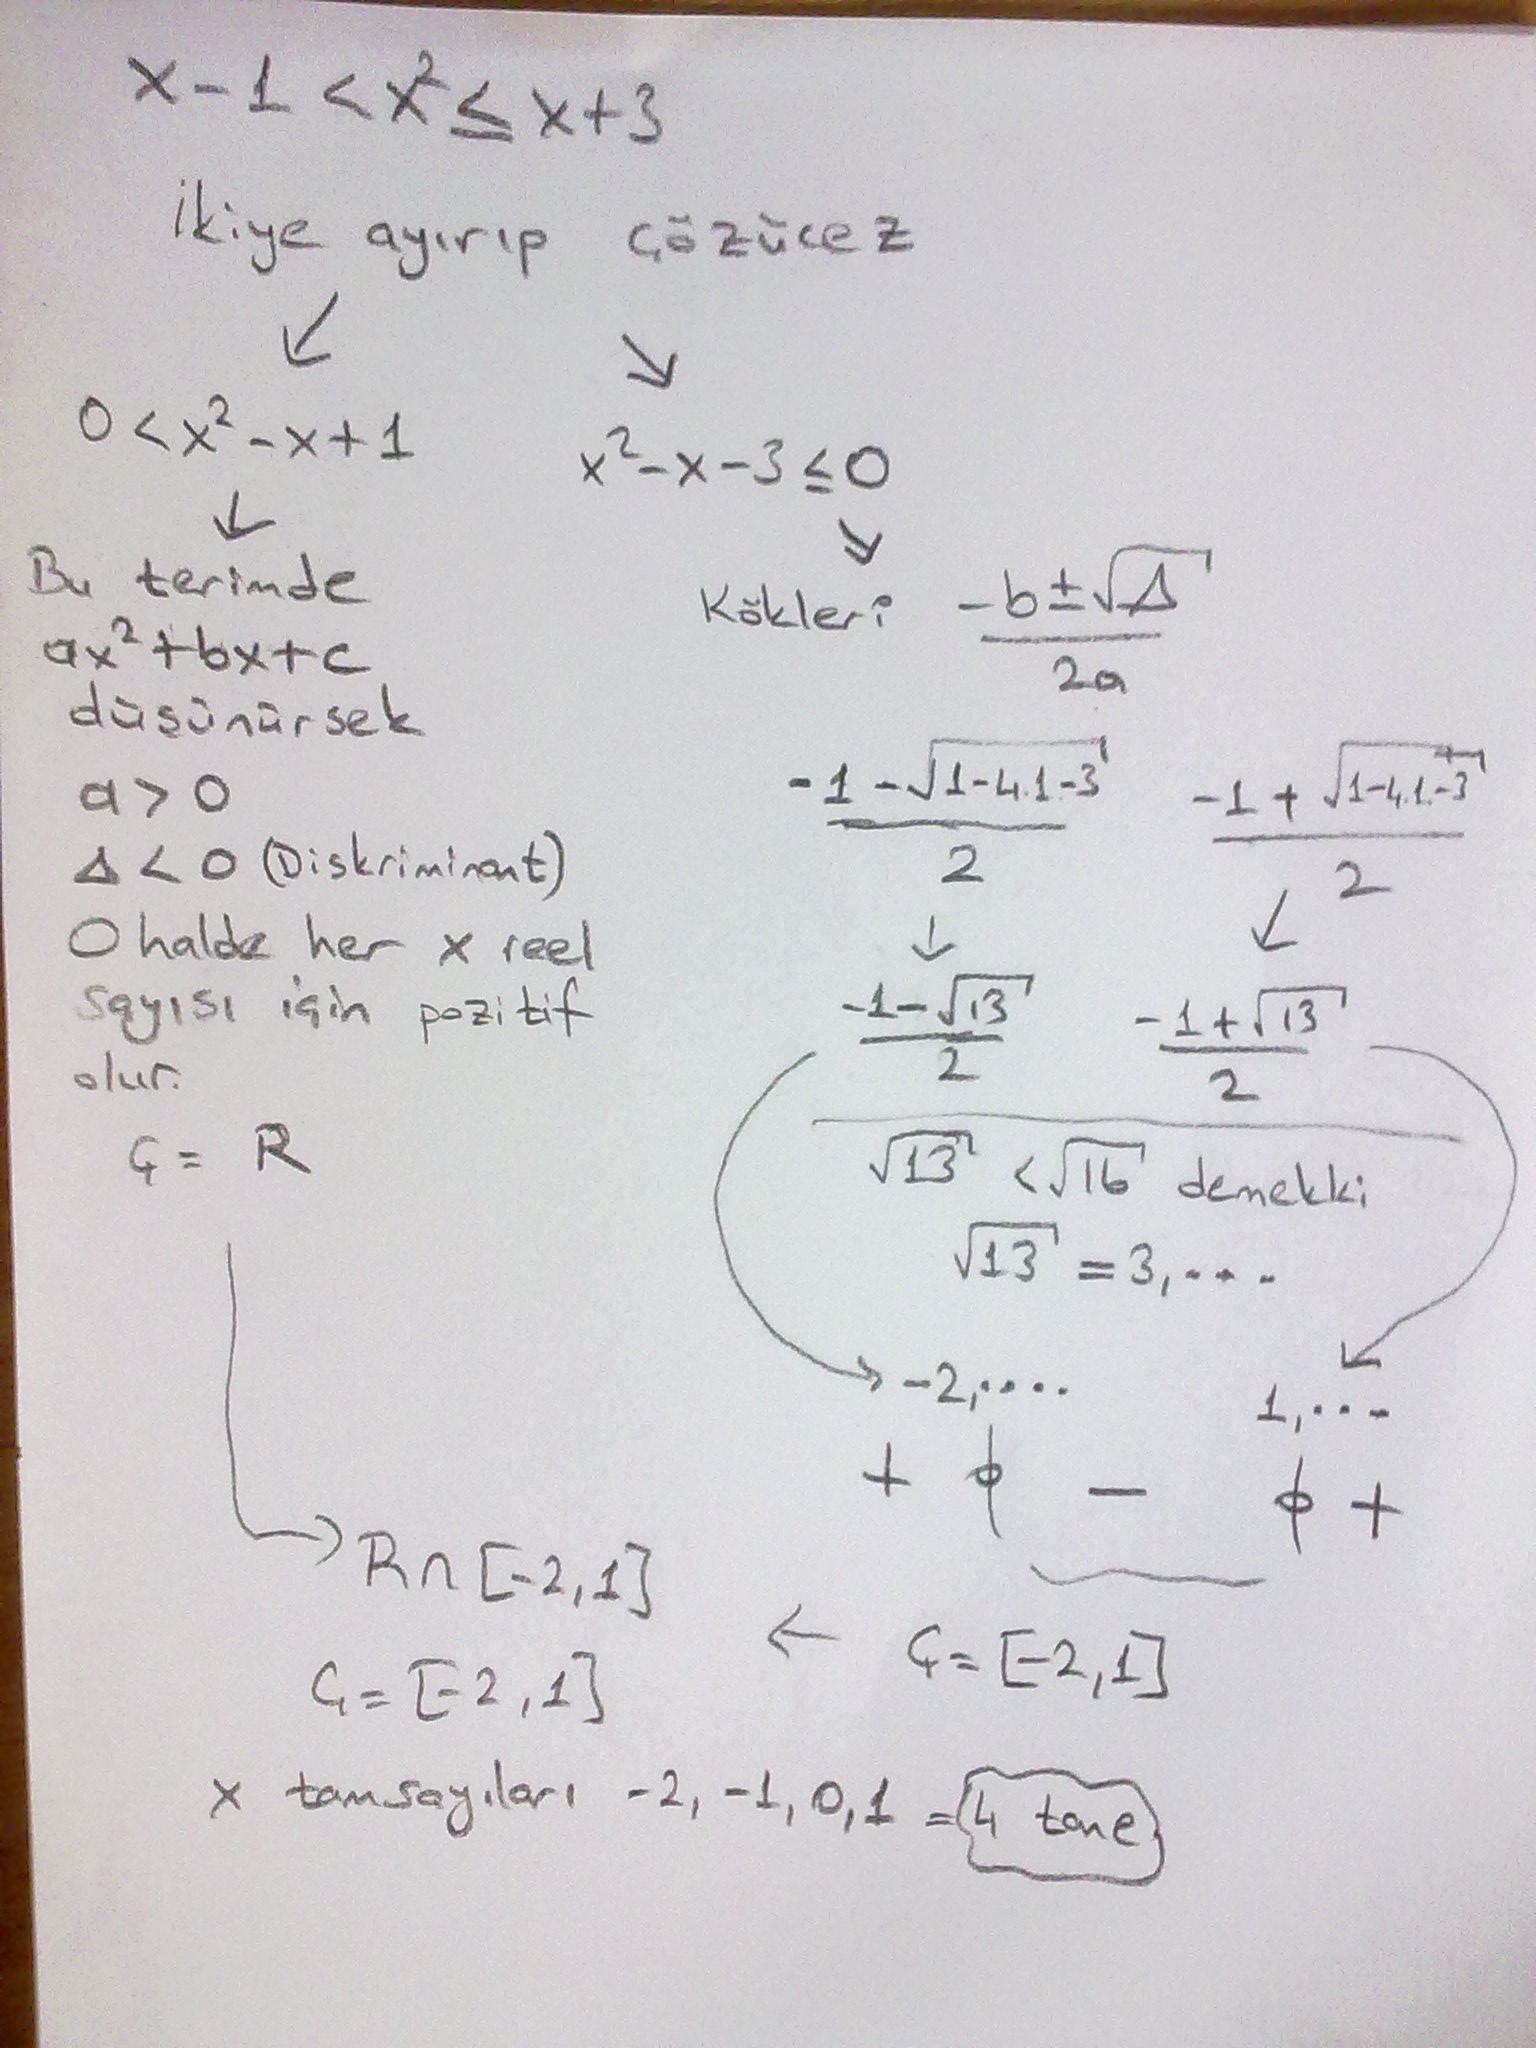 x-1 < x² ≤ x+3
İkiye ayırıp çözücez
↙ ↘
0 < x²-x+1
↓
Bu terimde
ax²+bx+c
düşünürsek
a > 0
Δ < 0 (Diskriminant)
O halde her x reel
sayısı için pozitif
olur.
Ç = R
x²-x-3 ≤ 0
↘
Kökleri (-b±√Δ)/2a
(-1-√(1-4.1.-3))/2 (-1+√(1-4.1.-3))/2
↓ ↙
(-1-√13)/2 (-1+√13)/2
√13 < √16 demekki
√13 = 3,...
→ -2,.... 1,...
+ ϕ - ϕ +
Ç = [-2,1]
←
→ R∩[-2,1]
Ç = [-2,1]
x tamsayıları -2, -1, 0, 1 = 4 tane